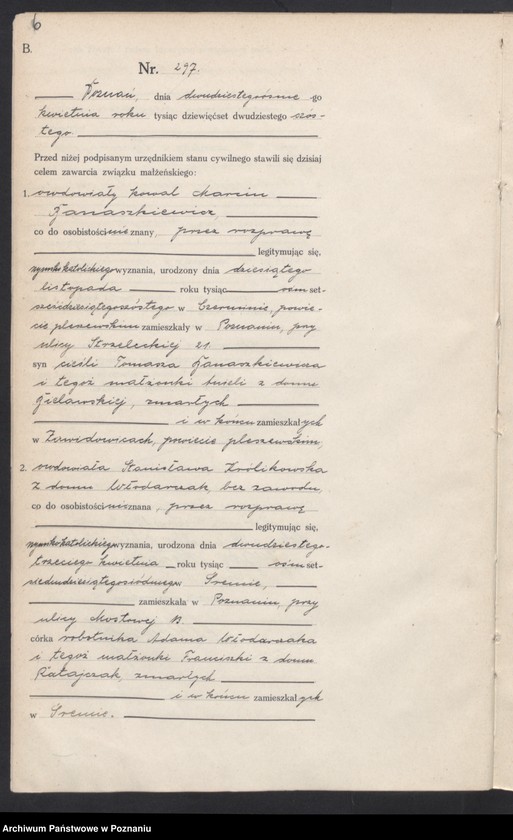 6
B.
Nr. 297.
Poznań, dnia dwudziestegoósme go
kwietnia roku tysiąc dziewięćset dwudziestego szós-
tego.
Przed niżej podpisanym urzędnikiem stanu cywilnego stawili się dzisiaj
celem zawarcia związku małżeńskiego:
1. owdowiały kowal Marcin
Banaszkiewicz,
co do osobistości nie znany, przez rozprawę
legitymując się,
rzymskokatolickiego wyznania, urodzony dnia dziesiątego
listopada roku tysiąc ośm set-
sześćdziesiątegoszóstego w Czerminie, powie-
cie pleszewskim zamieszkały w Poznaniu, przy
ulicy Strzeleckiej 21.
syn cieśli Tomasza Banaszkiewicza
i tegoż małżonki Husli z domu
zmarłych
i w końcu zamieszkałych
w Zawidowicach, powiecie pleszewskim,
2. owdowiała Stanisława Królikowska
z domu Włodarczak, bez zawodu
co do osobistości nieznana, przez rozprawę
legitymując się,
rzymskokatolickiego wyznania, urodzona dnia dwudziestego-
trzeciego kwietnia roku tysiąc ośm set-
siedemdziesiątegosiódmego w Śremie,
zamieszkała w Poznaniu, przy
ulicy Mostowej
córka robotnika Adama Włodarczaka
i tegoż małżonki Franciszki z domu
Ratajczak, zmarłych
i w końcu zamieszkałych
w Śremie.
Archiwum Państwowe w Poznaniu